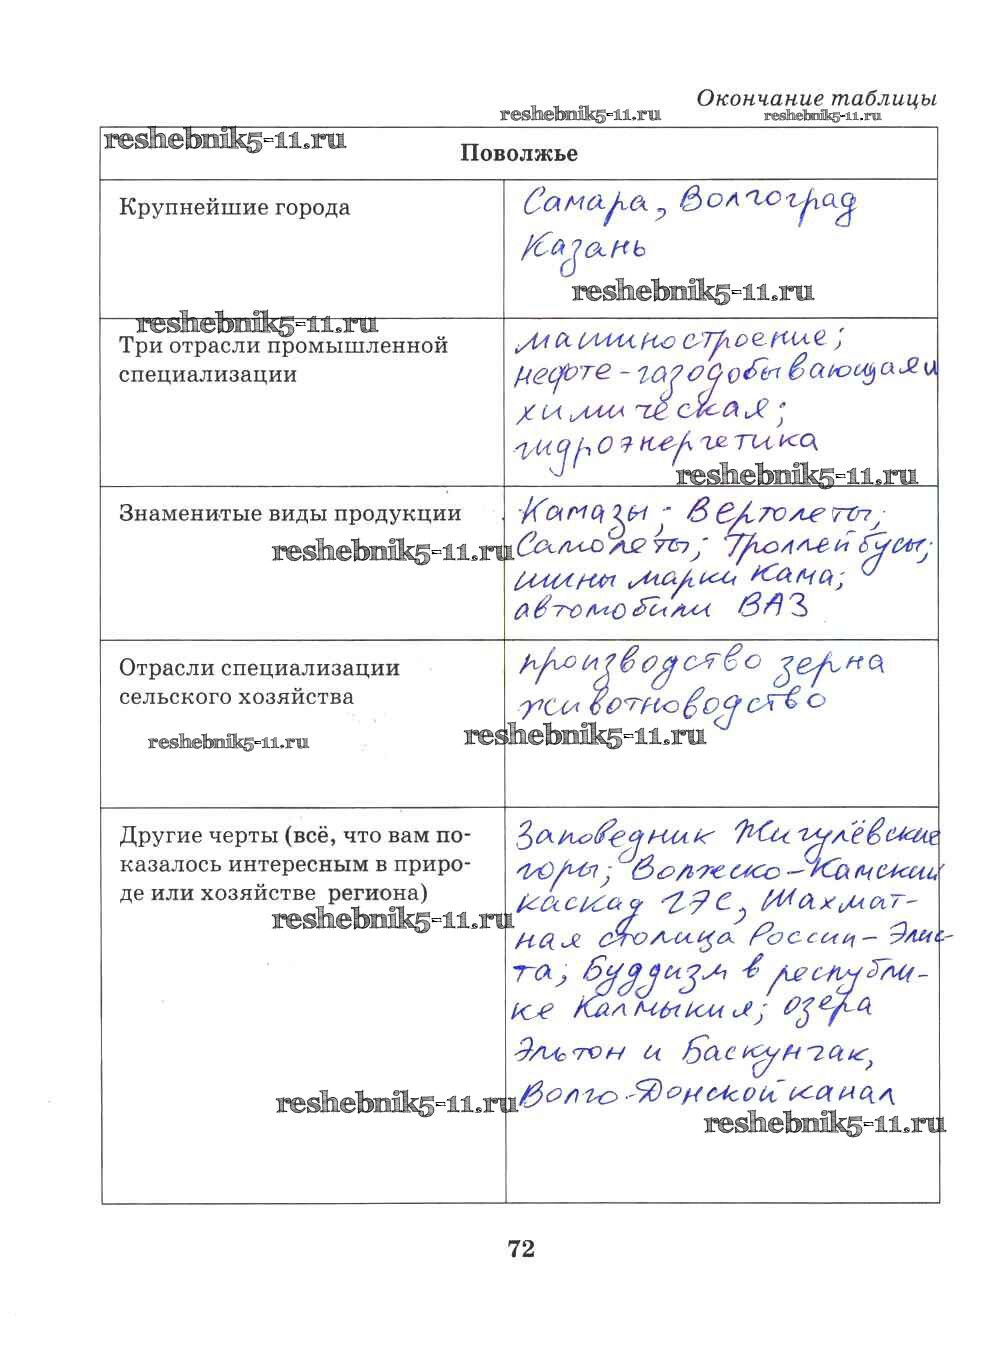 Окончание таблицы
reshebnik5-11.ru
reshebnik5-11.ru
reshebnik5-11.ru
Поволжье
Крупнейшие города
Самара, Волгоград
Казань
reshebnik5-11.ru
reshebnik5-11.ru
Три отрасли промышленной
специализации
машиностроение;
нефте-газодобывающая и
химическая;
гидроэнергетика
reshebnik5-11.ru
Знаменитые виды продукции
Камазы; Вертолеты;
reshebnik5-11.ru
Самолеты; Троллейбусы;
шины марки Кама;
автомобили ВАЗ
Отрасли специализации
сельского хозяйства
производство зерна
животноводство
reshebnik5-11.ru
reshebnik5-11.ru
Другие черты (всё, что вам по-
казалось интересным в приро-
де или хозяйстве региона)
reshebnik5-11.ru
Заповедник Жигулёвские
горы; Волжско-Камский
каскад ГЭС, Шахмат-
ная столица России-Элис-
та; Буддизм в республи-
ке Калмыкия; озера
Эльтон и Баскунчак,
Волго-Донской канал
reshebnik5-11.ru
reshebnik5-11.ru
72